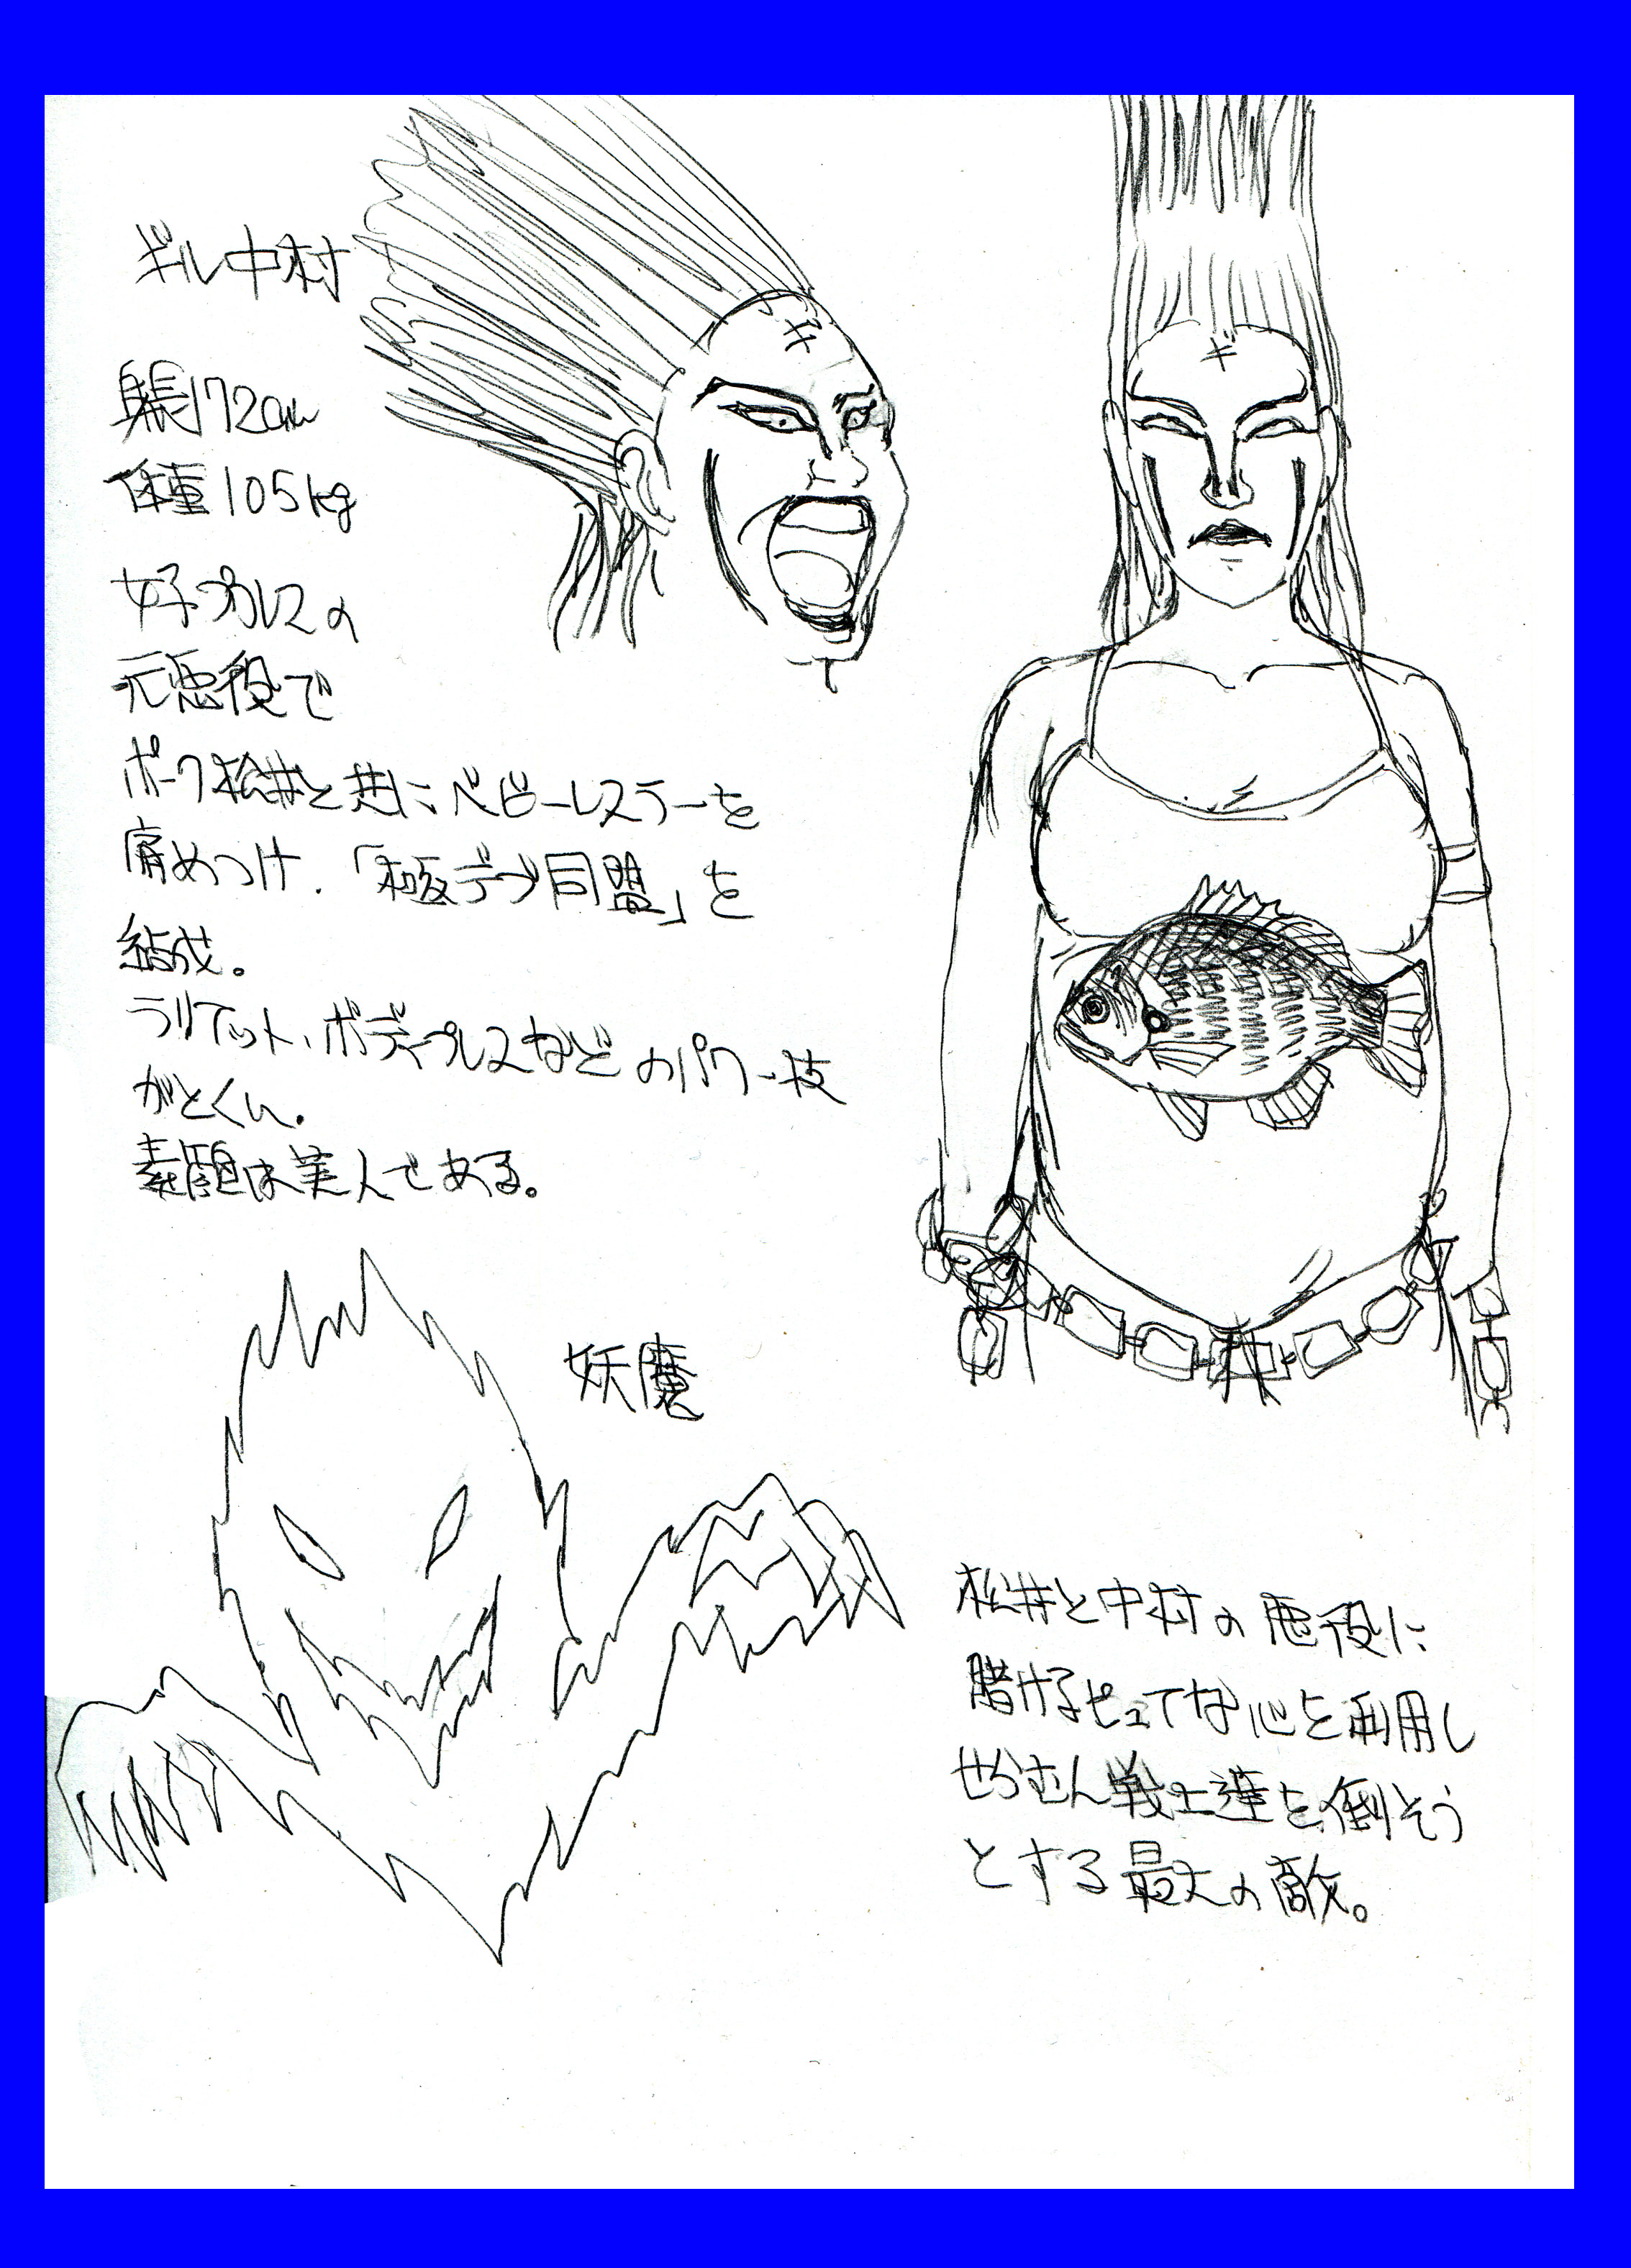 ギル中村
身長172cm
体重105kg
女子プロレスの
元悪役で
ポーク松井と共にベビーレスラーを
痛めつけ、「極デブ同盟」を
結成。
ラリアット、ボディプレスなどのパワー技
がとくい。
素顔は美人である。
ギ
ギ
妖魔
松井と中村の悪役に
賭けるピュアな心を利用し
せらむん戦士達を倒そう
とする最大の敵。